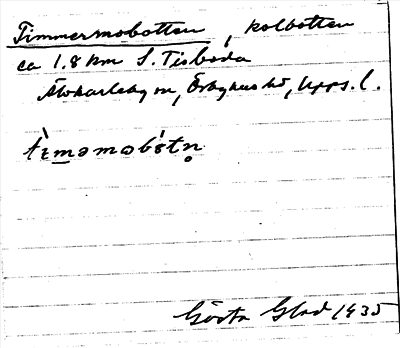 Timmermobotten, kolbotten
ca 1.8 km S. Tisboda
Älvkarleby sn, Örbyhus hd, Upps. l.
tìməmobòtn̥
Gösta Glad 1935